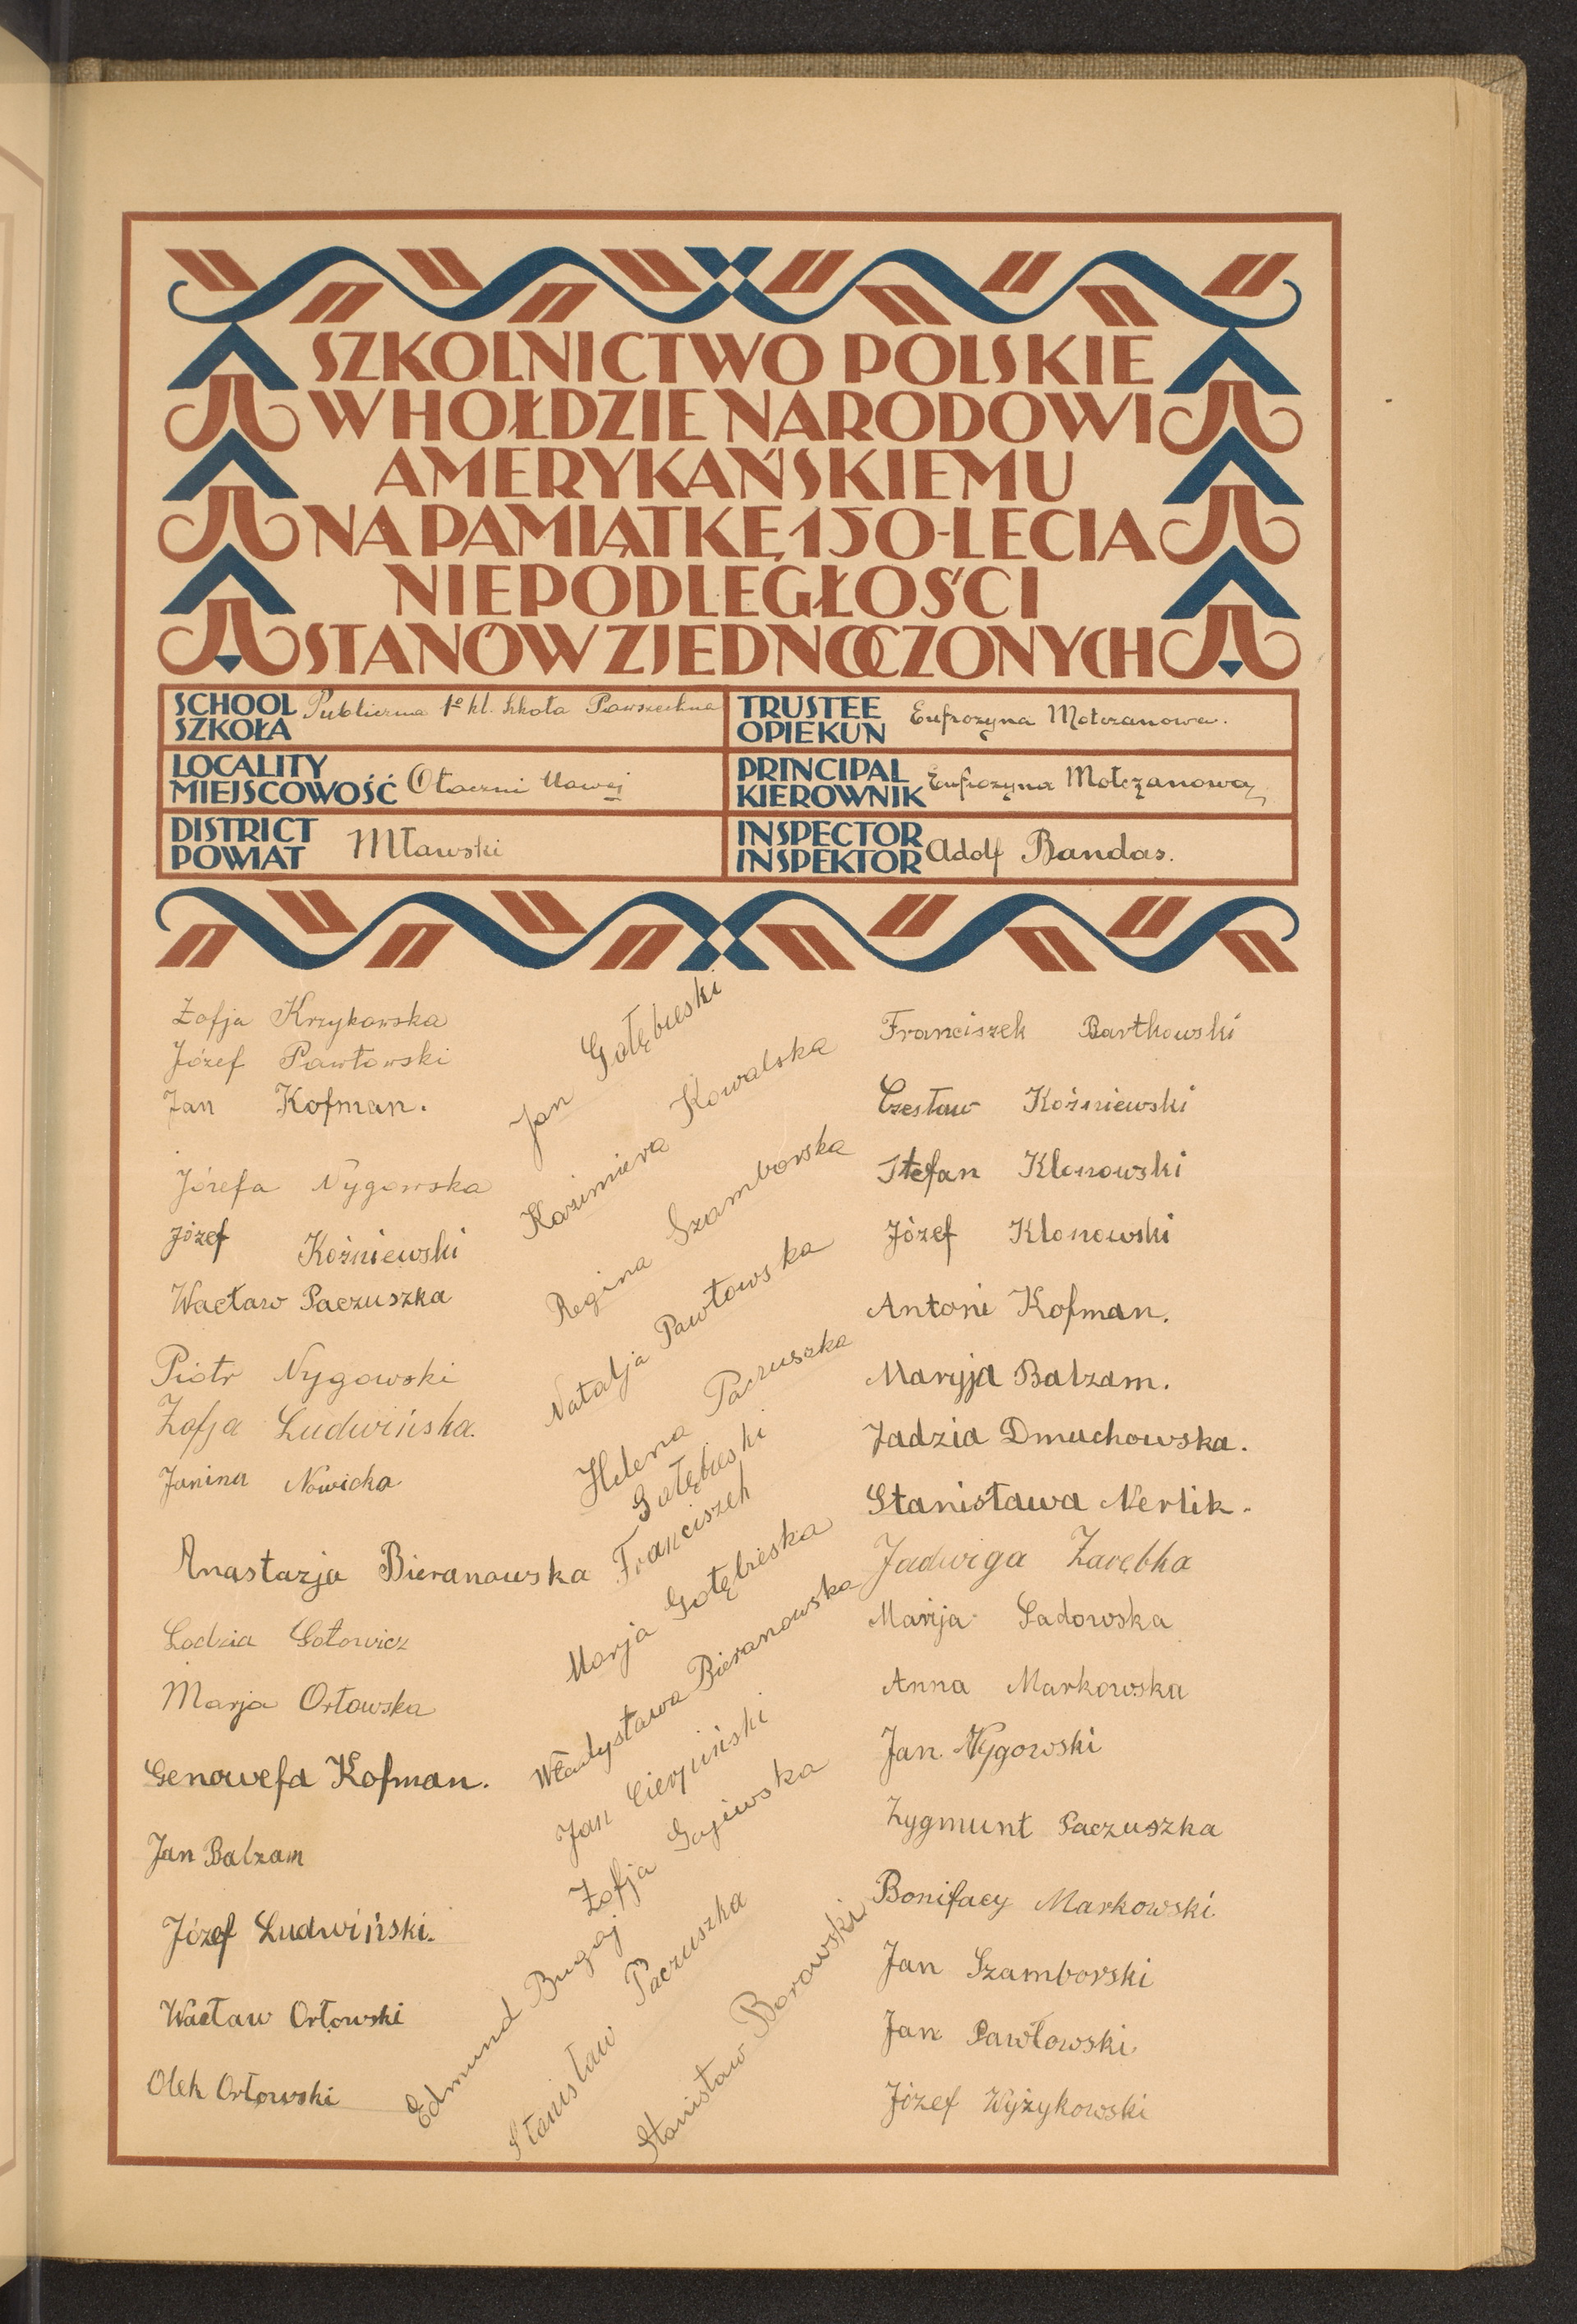 SZKOLNICTWO POLSKIE
W HOŁDZIE NARODOWI
AMERYKAŃSKIEMU
NA PAMIĄTKĘ 150-LECIA
NIEPODLEGŁOŚCI
STANÓW ZJEDNOCZONYCH
SCHOOL
SZKOŁA Publiczna 1º kl. Szkoła Powszechna
TRUSTEE
OPIEKUN Eufrozyna Mołczanowa.
LOCALITY
MIEJSCOWOŚĆ
PRINCIPAL
KIEROWNIK Eufrozyna Mołczanowa
DISTRICT
POWIAT Mławski
INSPECTOR
INSPEKTOR Adolf Bandas.
Zofja Krzykowska
Józef Pawłowski
Jan Kofman.
Józefa Nygowska
Józef Koźniewski
Wacław Paczuszka
Piotr Nygowski
Zofja Ludwińska.
Janina Nowicka
Anastazja Bieranowska
Lodzia Gołowicz
Marja Orłowska
Genowefa Kofman.
Jan Balzam
Józef Ludwiński.
Wacław Orłowski
Olek Orłowski
Jan Gołębieski
Kazimiera Kowalska
Regina Szamborska
Natalja Pawłowska
Helena Paczuszka
Gołębieski
Franciszek
Marja Gołębieska
Władysława Bieranowska
Jan Cierpiński
Zofja Gajewska
Edmund Bugaj
Stanisław Paczuszka
Stanisław Borowski
Franciszek Bartkowski
Czesław Koźniewski
Stefan Klonowski
Józef Klonowski
Antoni Kofman.
Maryja Balzam.
Jadzia Dmuchowska.
Stanisława Nerlik.
Jadwiga Zarębka
Marija Sadowska
Anna Markowska
Jan Nygowski
Zygmunt Paczuszka
Bonifacy Markowski
Jan Szamborski
Jan Pawłowski
Józef Wyżykowski